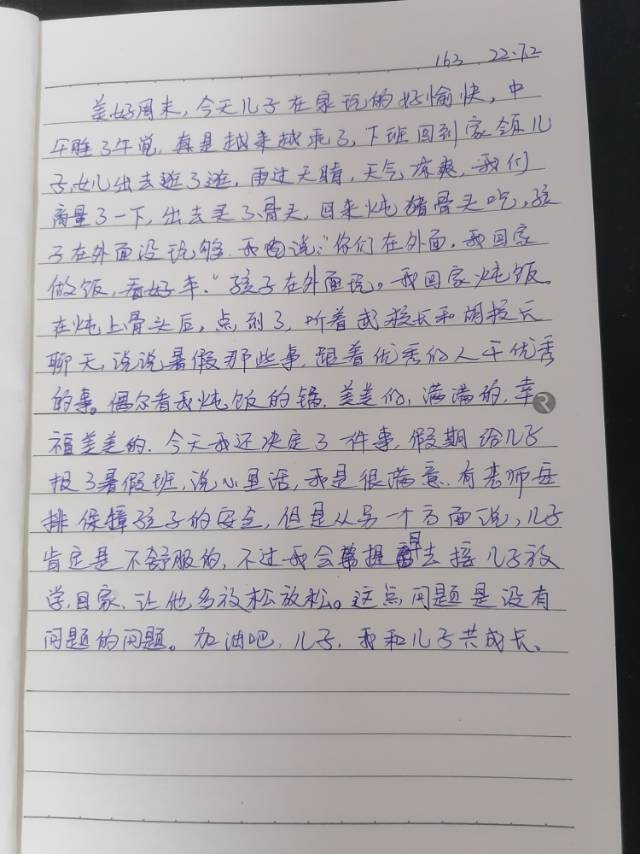 163 22.7.2
美好周末，今天儿子在家玩的好愉快，中
午睡了午觉，真是越来越乖了，下班回到家领儿
子、女儿出去逛了逛，雨过天晴，天气凉爽，我们
商量了一下，出去买了骨头，回来炖猪骨头吃，孩
子在外面没玩够，我说："你们在外面，我回家
做饭，看好车。"孩子在外面玩。我回家炖饭。
在炖上骨头后，点到了，听着武校长和闫校长
聊天，说说暑假那些事，跟着优秀的人干优秀
的事。偶尔看我炖饭的锅，美美的，满满的，幸
福美美的，今天我还决定了一件事，假期给儿子
报了暑假班，说心里话，我是很满意，有老师安
排保障孩子的安全，但是从另一个方面说，儿子
肯定是不舒服的，不过我会提早去接儿子放
学回家，让他多放松放松。这点问题是没有
问题的问题。加油吧，儿子，我和儿子共成长。